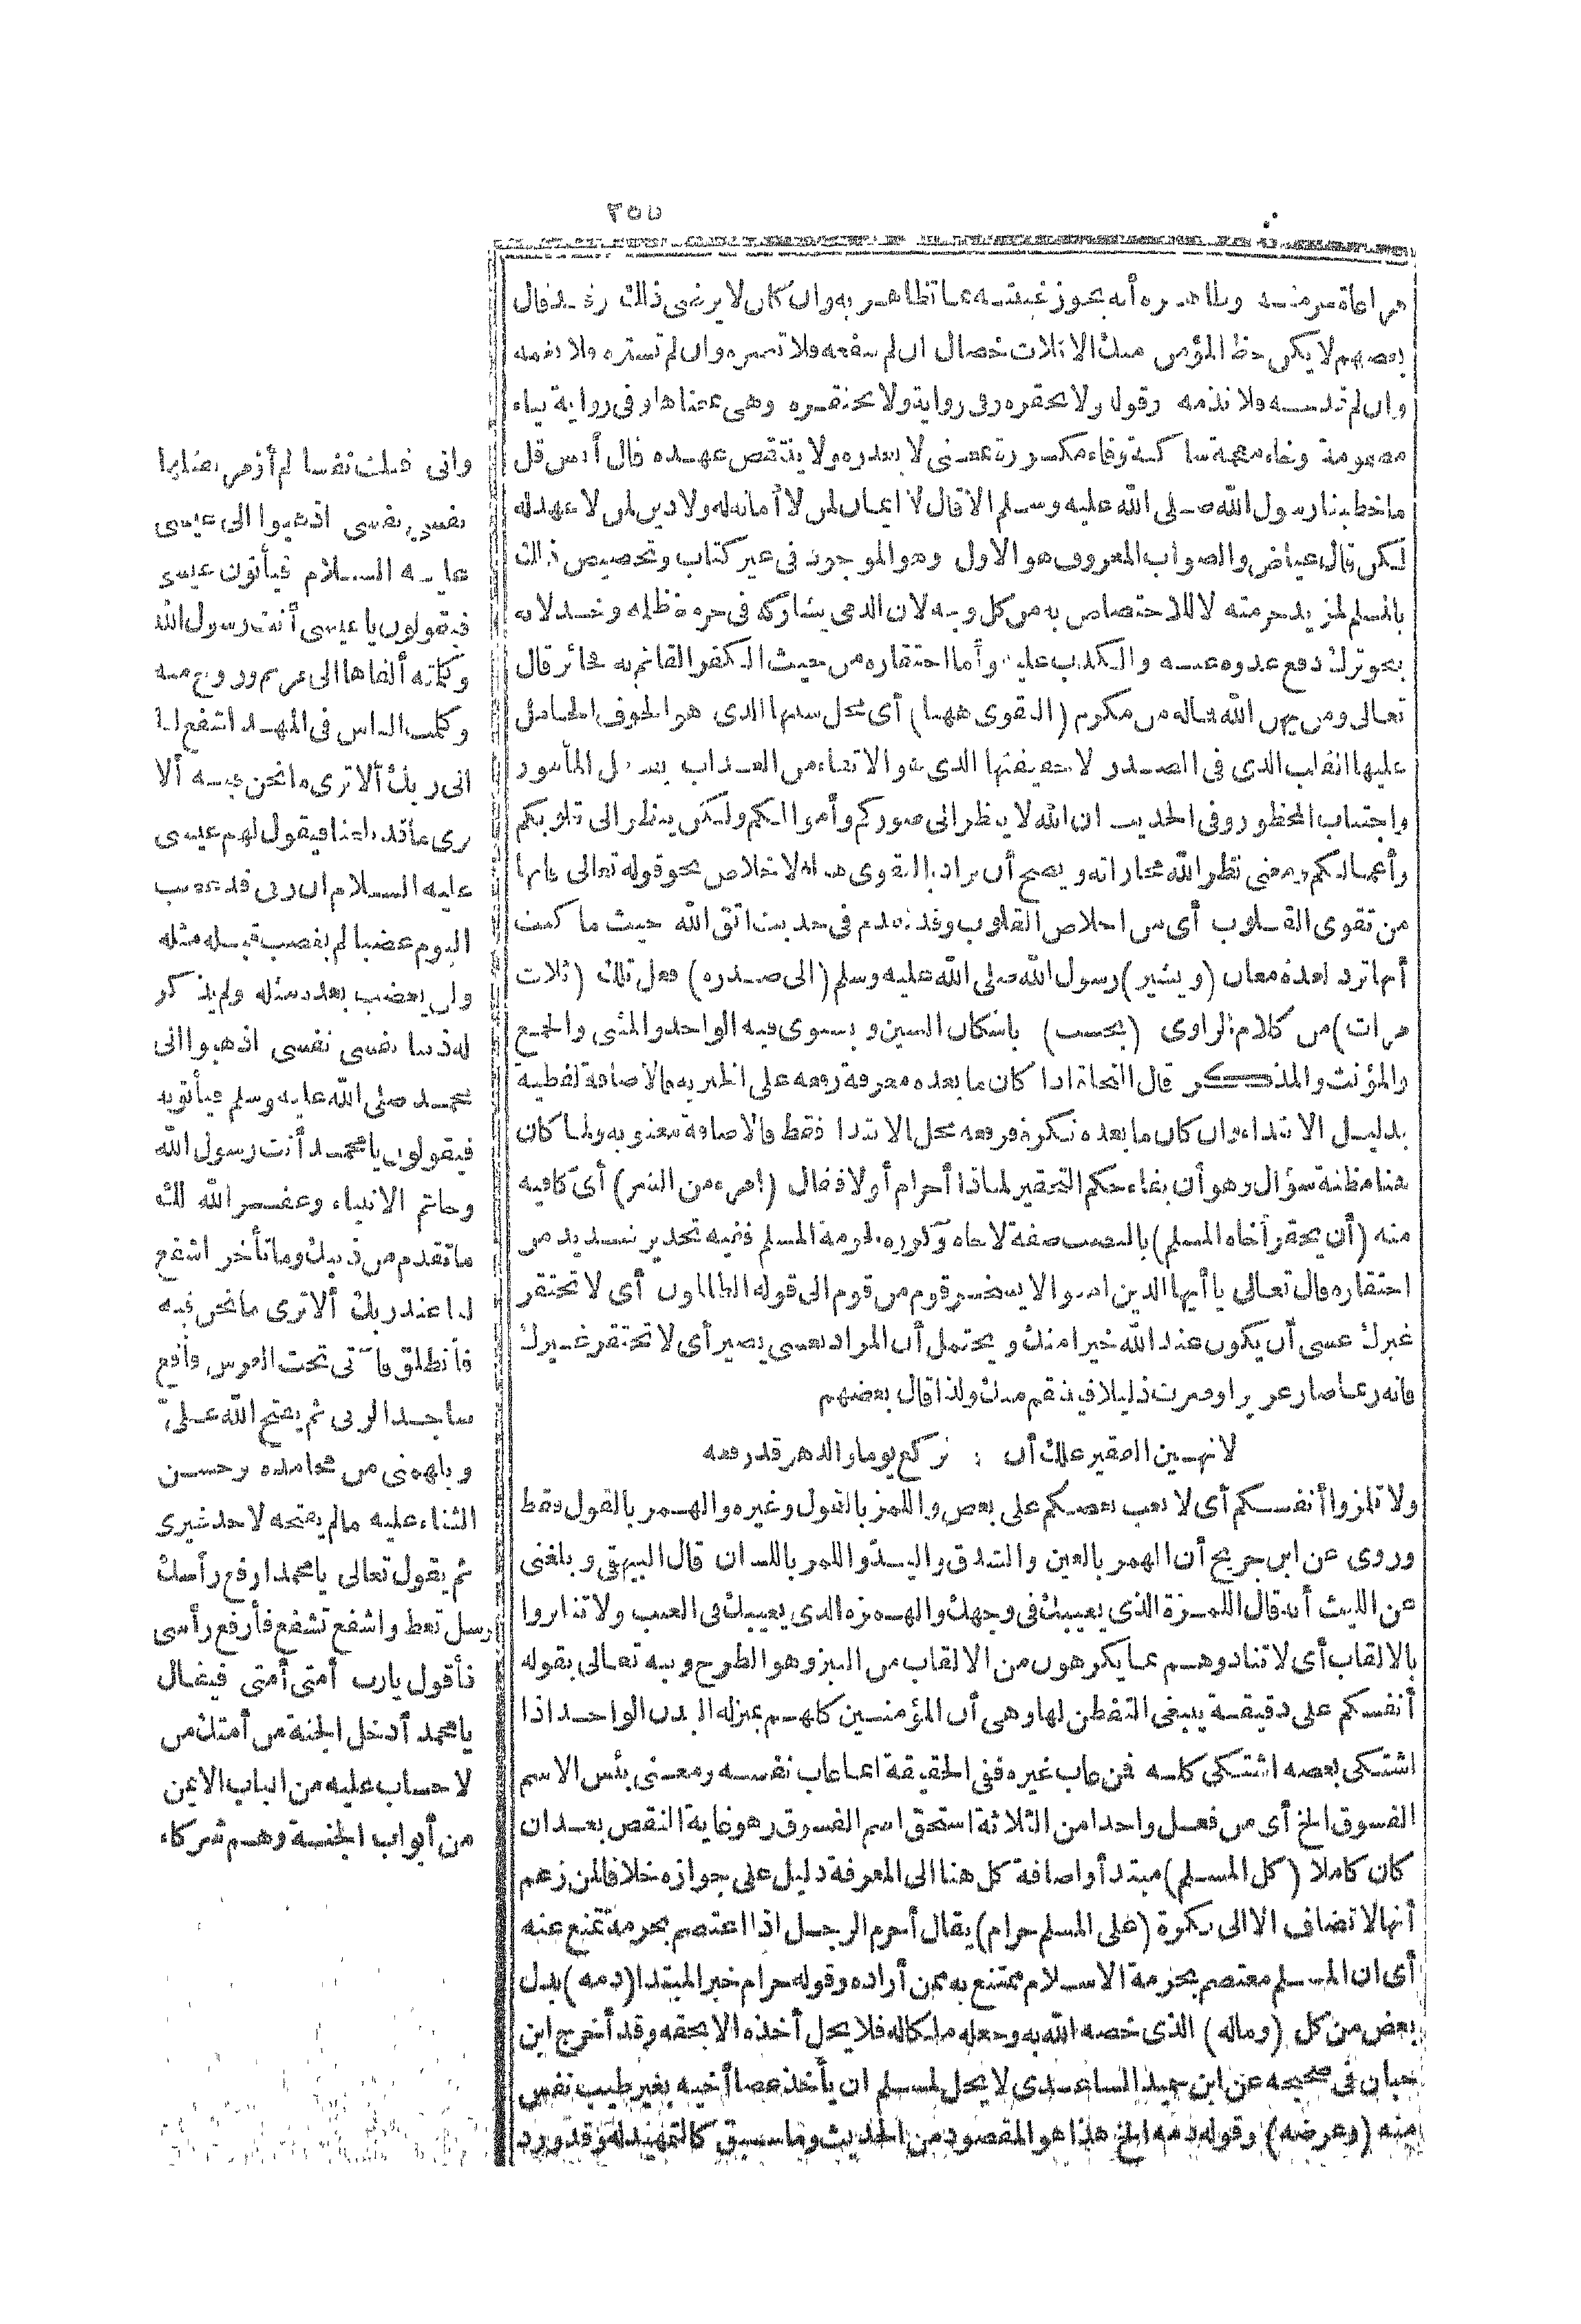 ٢٥٧
مراعاة حرمته وظاهره أنه يجوز غيبته بما تظاهر به وان كان لا يرضى ذلك فقال
بعضهم لا يكن حظ المؤمن منك الا ثلاث خصال ان لم تنفعه فلا تضره وان لم تستره فلا تفضحه
وان لم فلا تذمه وقوله ولا يحقره وفى رواية ولا يحتقره وهى بمعناها وفى رواية بياء
مضمومة وخاء معجمة ساكنة وفاء مكسورة بمعنى لا يغدره ولا ينتقض عهده قال أنس قل
ما خطبنا رسول الله صلى الله عليه وسلم الا قال لا ايمان لمن لا أمانة له ولا دين لمن لا عهد له
لكن قال عياض والصواب المعروف هو الاول وهو الموجود فى غير كتاب وتخصيص ذلك
بالمسلم لمزيد حرمته لا للاختصاص به من كل وجه لان الذمى يشاركه فى حرمة ظلمه وخذلانه
بنحو ترك دفع عدوه عنه والكذب عليه وأما احتقاره من حيث الكفر القائم به فجائز قال
تعالى ومن يهن الله فماله من مكرم (التقوى ههنا) أى محل سببها الذى هو الخوف الحامل
عليها القلب الذى فى الصدر لا حقيقتها الذى هو الاتقاء من العذاب بفعل المأمور
واجتناب المحظور وفى الحديث ان الله لا ينظر الى صوركم وأموالكم ولكن ينظر الى قلوبكم
وأعمالكم ومعنى نظر الله مجازاته ويصح أن يراد بالتقوى هنا الاخلاص نحو قوله تعالى فانها
من تقوى القلوب أى من اخلاص القلوب وقد تقدم فى حديث اتق الله حيث ما كنت
أنها ترد لعدة معان (ويشير) رسول الله صلى الله عليه وسلم (الى صدره) فعل ذلك (ثلاث
مرات) من كلام الراوى (بحسب) باسكان السين ويستوى فيه الواحد والمثنى والجمع
والمؤنث والمذكر قال النحاة اذا كان ما بعده معرفة رفعه على الخبرية فالاضافة لفظية
بدليل الابتداء وان كان ما بعده نكرة فرفعه محل الابتدا فقط فالاضافة معنوية ولما كان
هنا مظنة سؤال وهو أن يقال حكم التحقير لماذا أحرام أولا فقال (امرء من الشر) أى كافيه
منه (أن يحقر أخاه المسلم) بالنصب صفة لاخاه وكرره لحرمة المسلم ففيه تحذير شديد من
احتقاره قال تعالى يا أيها الذين امنوا لا يسخر قوم من قوم الى قوله الظالمون أى لا تحتقر
غيرك عسى أن يكون عند الله خيرا منك ويحتمل أن المراد بعسى يصير أى لا تحتقر غيرك
فانه ربما صار عزيزا وصرت ذليلا فينتقم منك ولذا قال بعضهم
لا تهين الفقير علك أن : تركع يوما والدهر قد رفعه
ولا تلمزوا أنفسكم أى لا يعب بعضكم على بعض واللمز بالقول وغيره والهمز بالقول فقط
وروى عن ابن جريج أن الهمز بالعين والشدق واليد واللمز باللسان قال البيهقى وبلغنى
عن الليث أنه قال اللمزة الذى يعيبك فى وجهك والهمزه الذى يعيبك فى الغيب ولا تنابزوا
بالالقاب أى لا تنادوهم بما يكرهون من الالقاب من النبز وهو الطرح ونبه تعالى بقوله
أنفسكم على دقيقة ينبغى التفطن لها وهى أن المؤمنين كلهم بمنزله البدن الواحد اذا
اشتكى بعضه اشتكى كله فمن عاب غيره ففى الحقيقة انما عاب نفسه ومعنى بئس الاسم
الفسوق الخ أى من فعل واحدا من الثلاثة استحق اسم الفسوق وهو غاية النقص بعد ان
كان كاملا (كل المسلم) مبتدأ واضافة كل هنا الى المعرفة دليل على جوازه خلافا لمن زعم
أنها لا تضاف الا الى نكرة (على المسلم حرام) يقال أحرم الرجل اذا اعتصم بحرمة تمنع عنه
أى ان المسلم معتصم بحرمة الاسلام ممتنع به ممن أراده وقوله حرام خبر المبتدا (دمه) بدل
بعض من كل (وماله) الذى خصه الله به وجعله ملكا له فلا يحل أخذه الا بحقه وقد أخرج ابن
حبان فى صحيحه عن ابن حميد الساعدى لا يحل لمسلم ان يأخذ عصا أخيه بغير طيب نفس
منه (وعرضه) وقوله دمه الخ هذا هو المقصود من الحديث وما سبق كالتمهيد له وقد ورد
وانى قتلت نفسا لم أومر بقتلها
نفسى نفسى اذهبوا الى عيسى
عليه السلام فيأتون عيسى
فيقولون يا عيسى أنت رسول الله
وكلمته ألقاها الى مريم وروح منه
وكلمت الناس فى المهد اشفع لنا
الى ربك ألا ترى ما نحن فيه ألا
ترى ما قد بلغنا فيقول لهم عيسى
عليه السلام ان ربى قد غضب
اليوم غضبا لم يغضب قبله مثله
ولن يغضب بعده مثله ولم يذكر
له ذنبا نفسى نفسى اذهبوا الى
محمد صلى الله عليه وسلم فيأتونه
فيقولون يا محمد أنت رسول الله
وخاتم الانبياء وغفر الله لك
ما تقدم من ذنبك وما تأخر اشفع
لنا عند ربك ألا ترى ما نحن فيه
فأنطلق فآتى تحت العرش فأقع
ساجدا لربى ثم يفتح الله علىّ
ويلهمنى من محامده وحسن
الثناء عليه مالم يفتحه لاحد غيرى
ثم يقول تعالى يا محمد ارفع رأسك
وسل تعط واشفع تشفع فأرفع رأسى
فأقول يارب أمتى أمتى فيقال
يا محمد أدخل الجنة من أمتك من
لا حساب عليه من الباب الايمن
من أبواب الجنة وهم شركاء